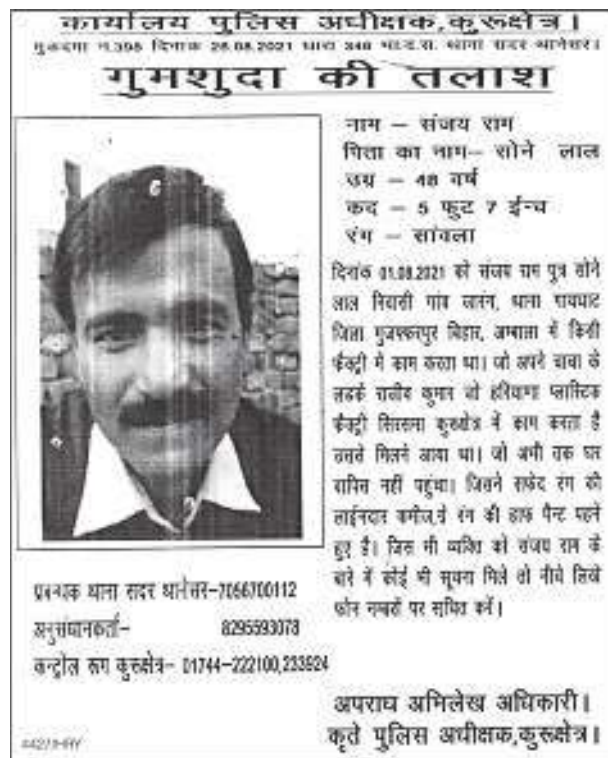 कार्यालय पुलिस अधीक्षक,कुरूक्षेत्र।
मुकदमा न.395 दिनांक 28.08.2021 धारा 346 भा.द.स. थाना सदर थानेसर।
गुमशुदा की तलाश
नाम – संजय राम
पिता का नाम– सोने लाल
उम्र – 48 वर्ष
कद – 5 फुट 7 ईन्च
रंग – सांवला
दिनांक 01.08.2021 को संजय राम पुत्र सोने
लाल निवासी गांव जारंग, थाना गायघाट
जिला मुजफ्फरपुर बिहार, अम्बाला में किसी
फैक्ट्री में काम करता था। जो अपने चाचा के
लडके राजीव कुमार जो हरियाणा प्लास्टिक
फैक्ट्री सिरसमा कुरूक्षेत्र में काम करता है
उससे मिलने आया था। जो अभी तक घर
वापिस नहीं पहुंचा। जिसने सफेद रंग की
लाईनदार कमीज, रंग की हाफ पैन्ट पहने
हुए है। जिस भी व्यक्ति को संजय राम के
बारे में कोई भी सूचना मिले तो नीचे लिखे
फोन नम्बरों पर सूचित करें।
प्रबन्धक थाना सदर थानेसर–7056700112
अनुसंधानकर्ता– 8295593078
कन्ट्रोल रूम कुरूक्षेत्र– 01744–222100,233924
अपराध अभिलेख अधिकारी।
कृते पुलिस अधीक्षक,कुरूक्षेत्र।